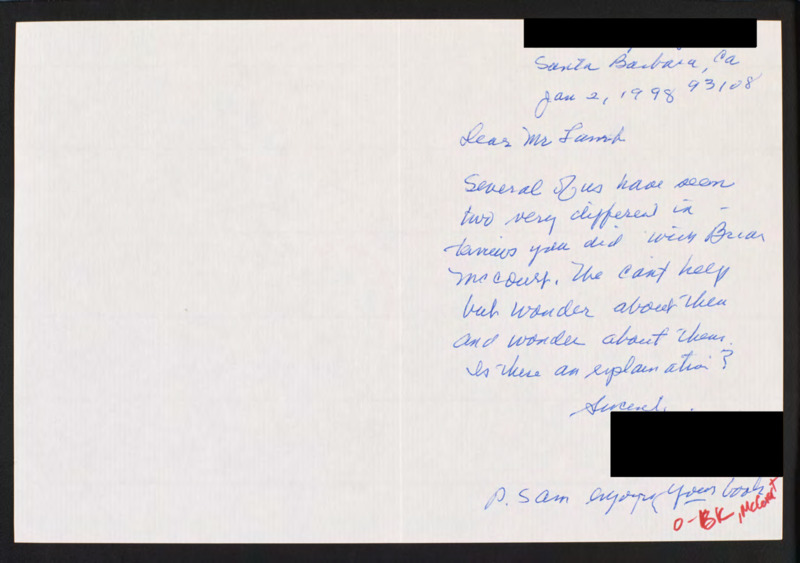 Santa Barbara, Ca
Jan 2, 1998 93108
Dear Mr Lamb
Several of us have seen
two very different in -
terviews you did with Brian
McCourt. We can't help
but wonder about them
and wonder about them.
Is there an explanation?
P.S am enjoying your book
O-BK, McCourt